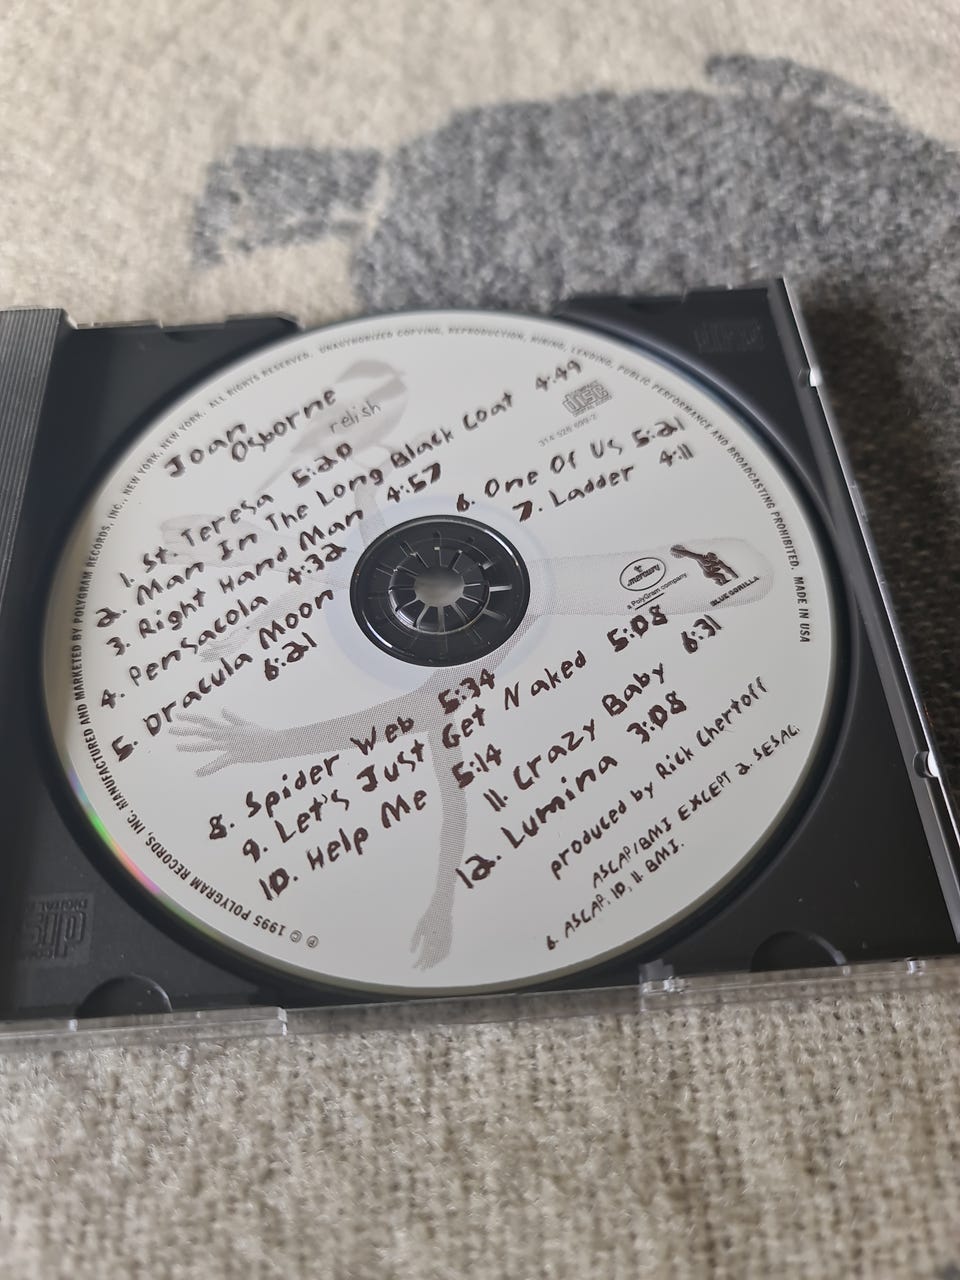 Joan
Osborne
relish
1. St. Teresa 5:20
2. Man In The Long Black Coat 4:49
3. Right Hand Man 4:57
4. Pensacola 4:32
5. Dracula Moon
6:21
6. One Of Us 5:21
7. Ladder 4:11
8. Spider Web 5:34
9. Let's Just Get Naked 5:08
10. Help Me 5:14
11. Crazy Baby 6:31
12. Lumina 3:08
produced by Rick Chertoff
ASCAP/BMI EXCEPT 2. SESAC.
6. ASCAP. 10, 11. BMI.
314 526 699-2
mercury
a PolyGram company
BLUE GORILLA
℗ © 1995 POLYGRAM RECORDS, INC. MANUFACTURED AND MARKETED BY POLYGRAM RECORDS, INC., NEW YORK, NEW YORK. ALL RIGHTS RESERVED. UNAUTHORIZED COPYING, REPRODUCTION, HIRING, LENDING, PUBLIC PERFORMANCE AND BROADCASTING PROHIBITED. MADE IN USA